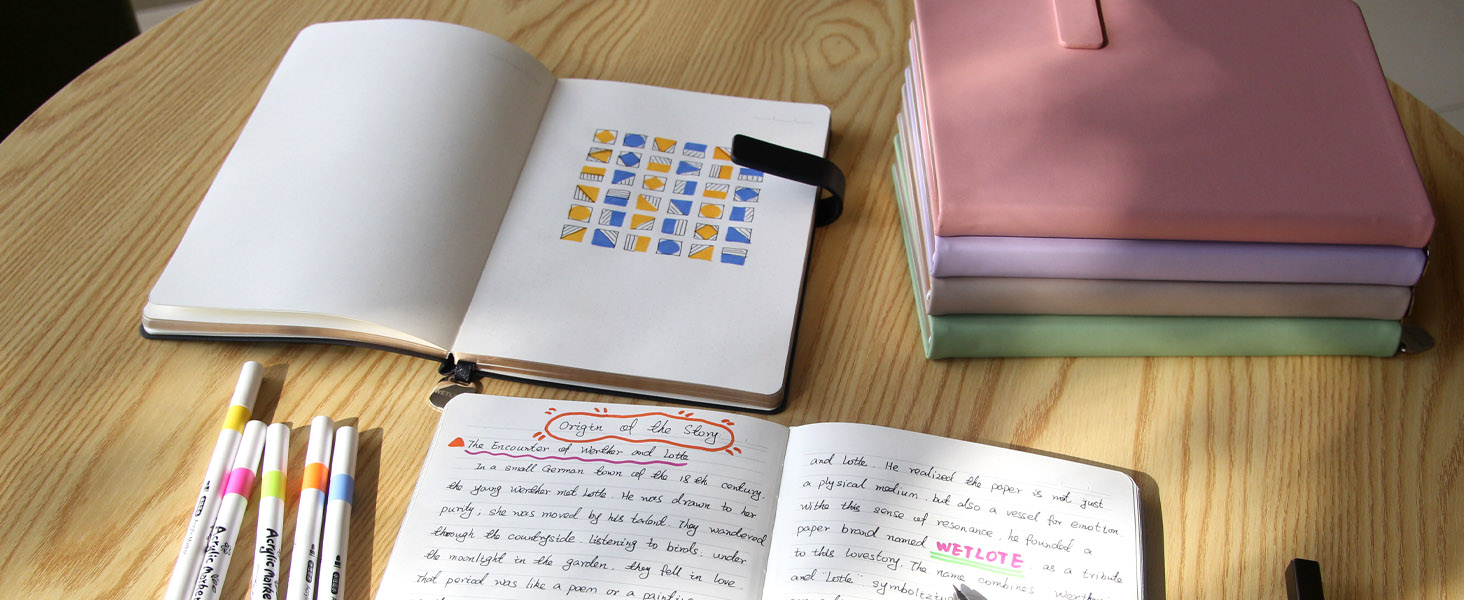 Origin of the Story
The Encounter of Werther and Lotte
In a small German town of the 18th century,
the young Werther met Lotte. He was drawn to her
purity, she was moved by his talent. They wandered
through the countryside, listening to birds, under
the moonlight in the garden, they fell in love.
That period was like a poem or a
and Lotte. He realized the paper is not just
a physical medium, but also a vessel for emotion.
withe this sense of resonance, he founded a
paper brand named WETLOTE, as a tribute
to this lovestory. The name combines
and "Lotte"
Acrylic Marker
Acrylic Marker